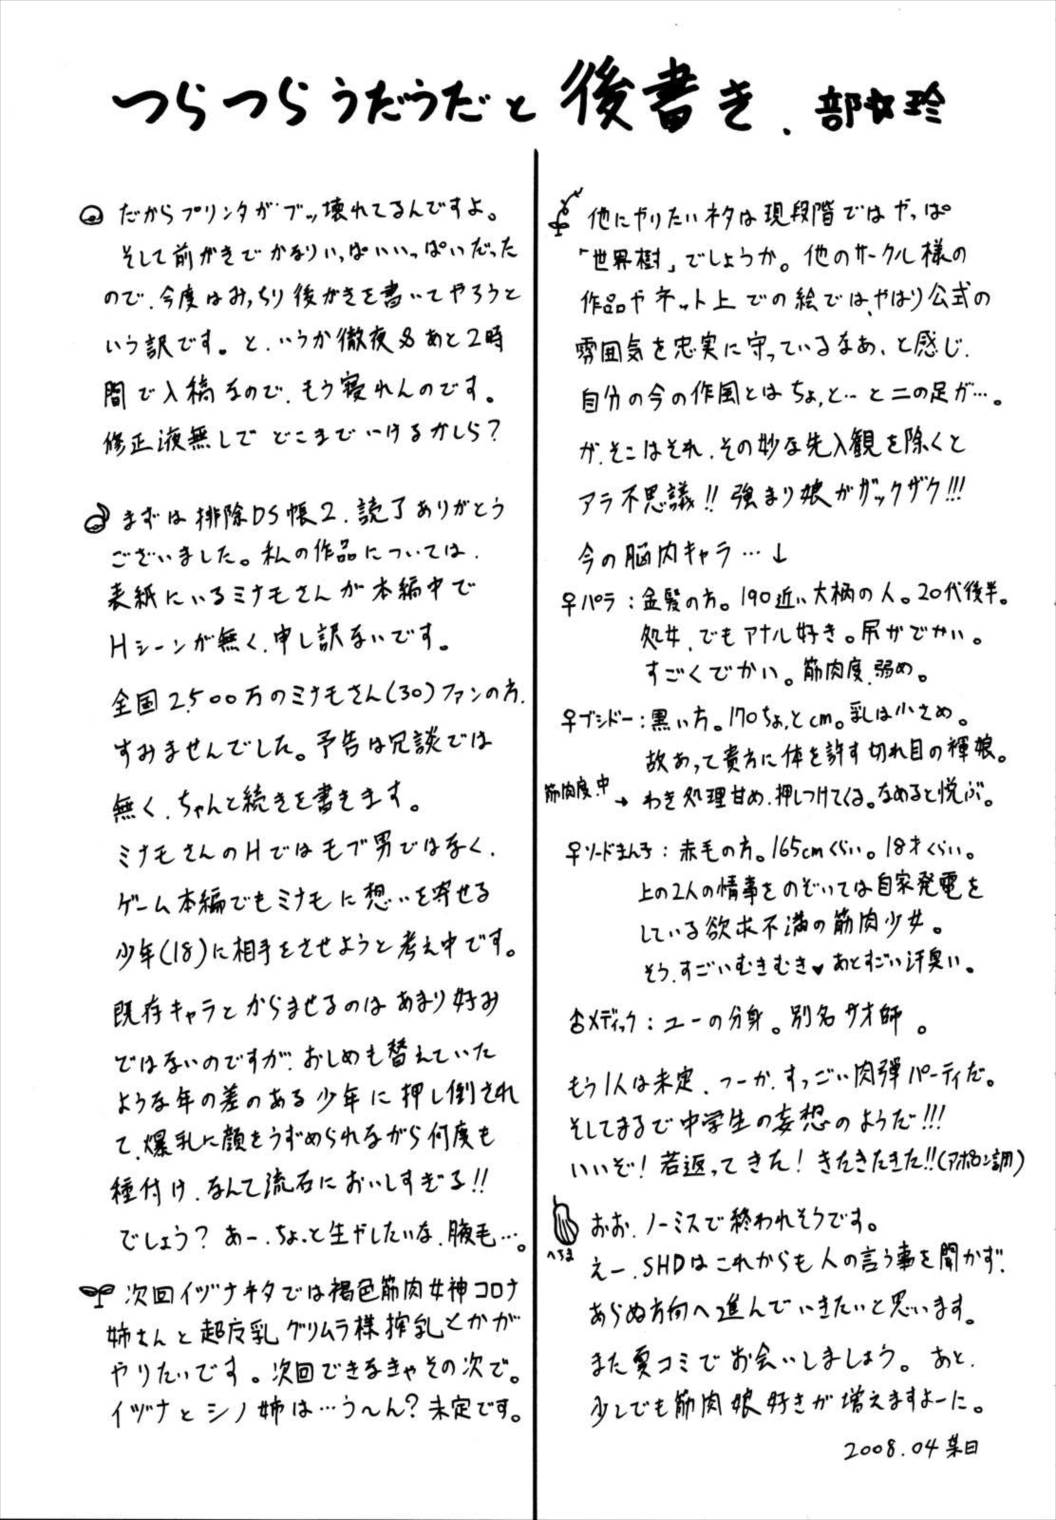 つらつらうだうだと後書き、部☆玲
だからプリンタがブッ壊れてるんですよ。
そして前がきでかなりいっぱいいっぱいだった
ので、今度はみっちり後がきを書いてやろうと
いう訳です。と、いうか徹夜&あと2時
間で入稿なので、もう寝れんのです。
修正液無しでどこまでいけるかしら?
まずは排除DS帳2、読了ありがとう
ございました。私の作品については、
表紙にいるミナモさんが本編中で
Hシーンが無く、申し訳ないです。
全国2,500万のミナモさん(30)ファンの方、
すみませんでした。予告は冗談では
無く、ちゃんと続きを書きます。
ミナモさんのHではモブ男ではなく、
ゲーム本編でもミナモに想いを寄せる
少年(18)に相手をさせようと考え中です。
既存キャラとからませるのはあまり好み
ではないのですが、おしめも替えていた
ような年の差のある少年に押し倒され
て、爆乳に顔をうずめられながら何度も
種付け、なんて流石においしすぎる!!
でしょう?あー、ちょっと生やしたいな、腋毛…。
次回イヅナネタでは褐色筋肉女神コロナ
姉さんと超反乳グリムラ様搾乳とかが
やりたいです。次回できなきゃその次で。
イヅナとシノ姉は…う～ん?未定です。
他にやりたいネタは現段階ではやっぱ
「世界樹」でしょうか。他のサークル様の
作品やネット上での絵では、やはり公式の
雰囲気を忠実に守っているなあ、と感じ、
自分の今の作風とはちょっと…と二の足が…。
が、そこはそれ、その妙な先入観を除くと
アラ不思議!!強まり娘がガックザク!!!
今の脳内キャラ…↓
♀パラ:金髪の方。190近い大柄の人。20代後半。
処女、でもアナル好き。尻がでかい。
すごくでかい。筋肉度、弱め。
♀ブシドー:黒い方。170ちょっとcm。乳は小さめ。
故あって貴方に体を許す切れ目の褌娘。
筋肉度、中→わき処理甘め、押しつけてくる。なめると悦ぶ。
♀ソードまん子:赤毛の方。165cmくらい。18才くらい。
上の2人の情事をのぞいては自家発電を
している欲求不満の筋肉少女。
そう、すごいむきむき♥あとすごい汗臭い。
♂メディック:ユーの分身。別名サオ師。
もう1人は未定、つーか、すっごい肉弾パーティだ。
そしてまるで中学生の妄想のようだ!!!
いいぞ!若返ってきた!きたきたきた!!(アポロン調)
へちま
おお、ノーミスで終われそうです。
えー、SHDはこれからも人の言う事を聞かず、
あらぬ方向へ進んでいきたいと思います。
また夏コミでお会いしましょう。あと、
少しでも筋肉娘好きが増えますよーに。
2008.04某日